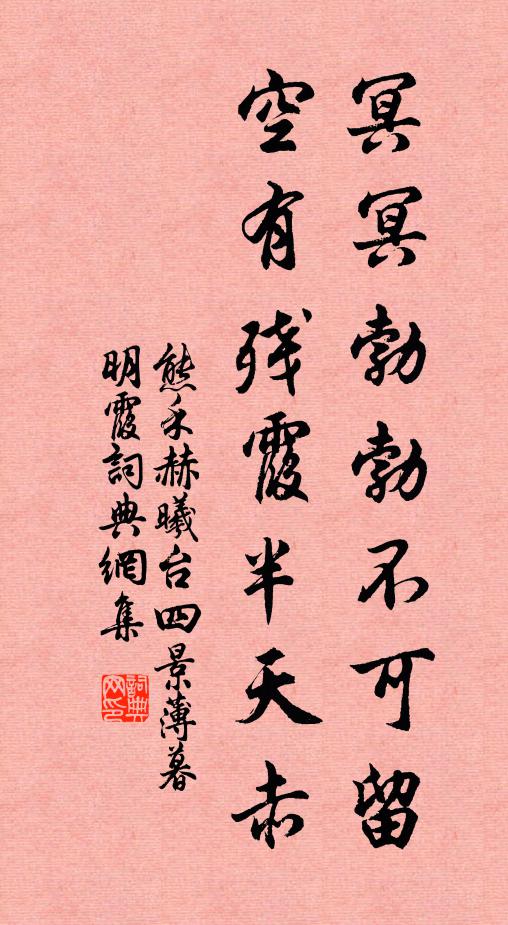 冥冥勃勃不可留
空有残霞半天赤
熊禾赫曦台四景薄暮
明霞詞典網集
詞典網印